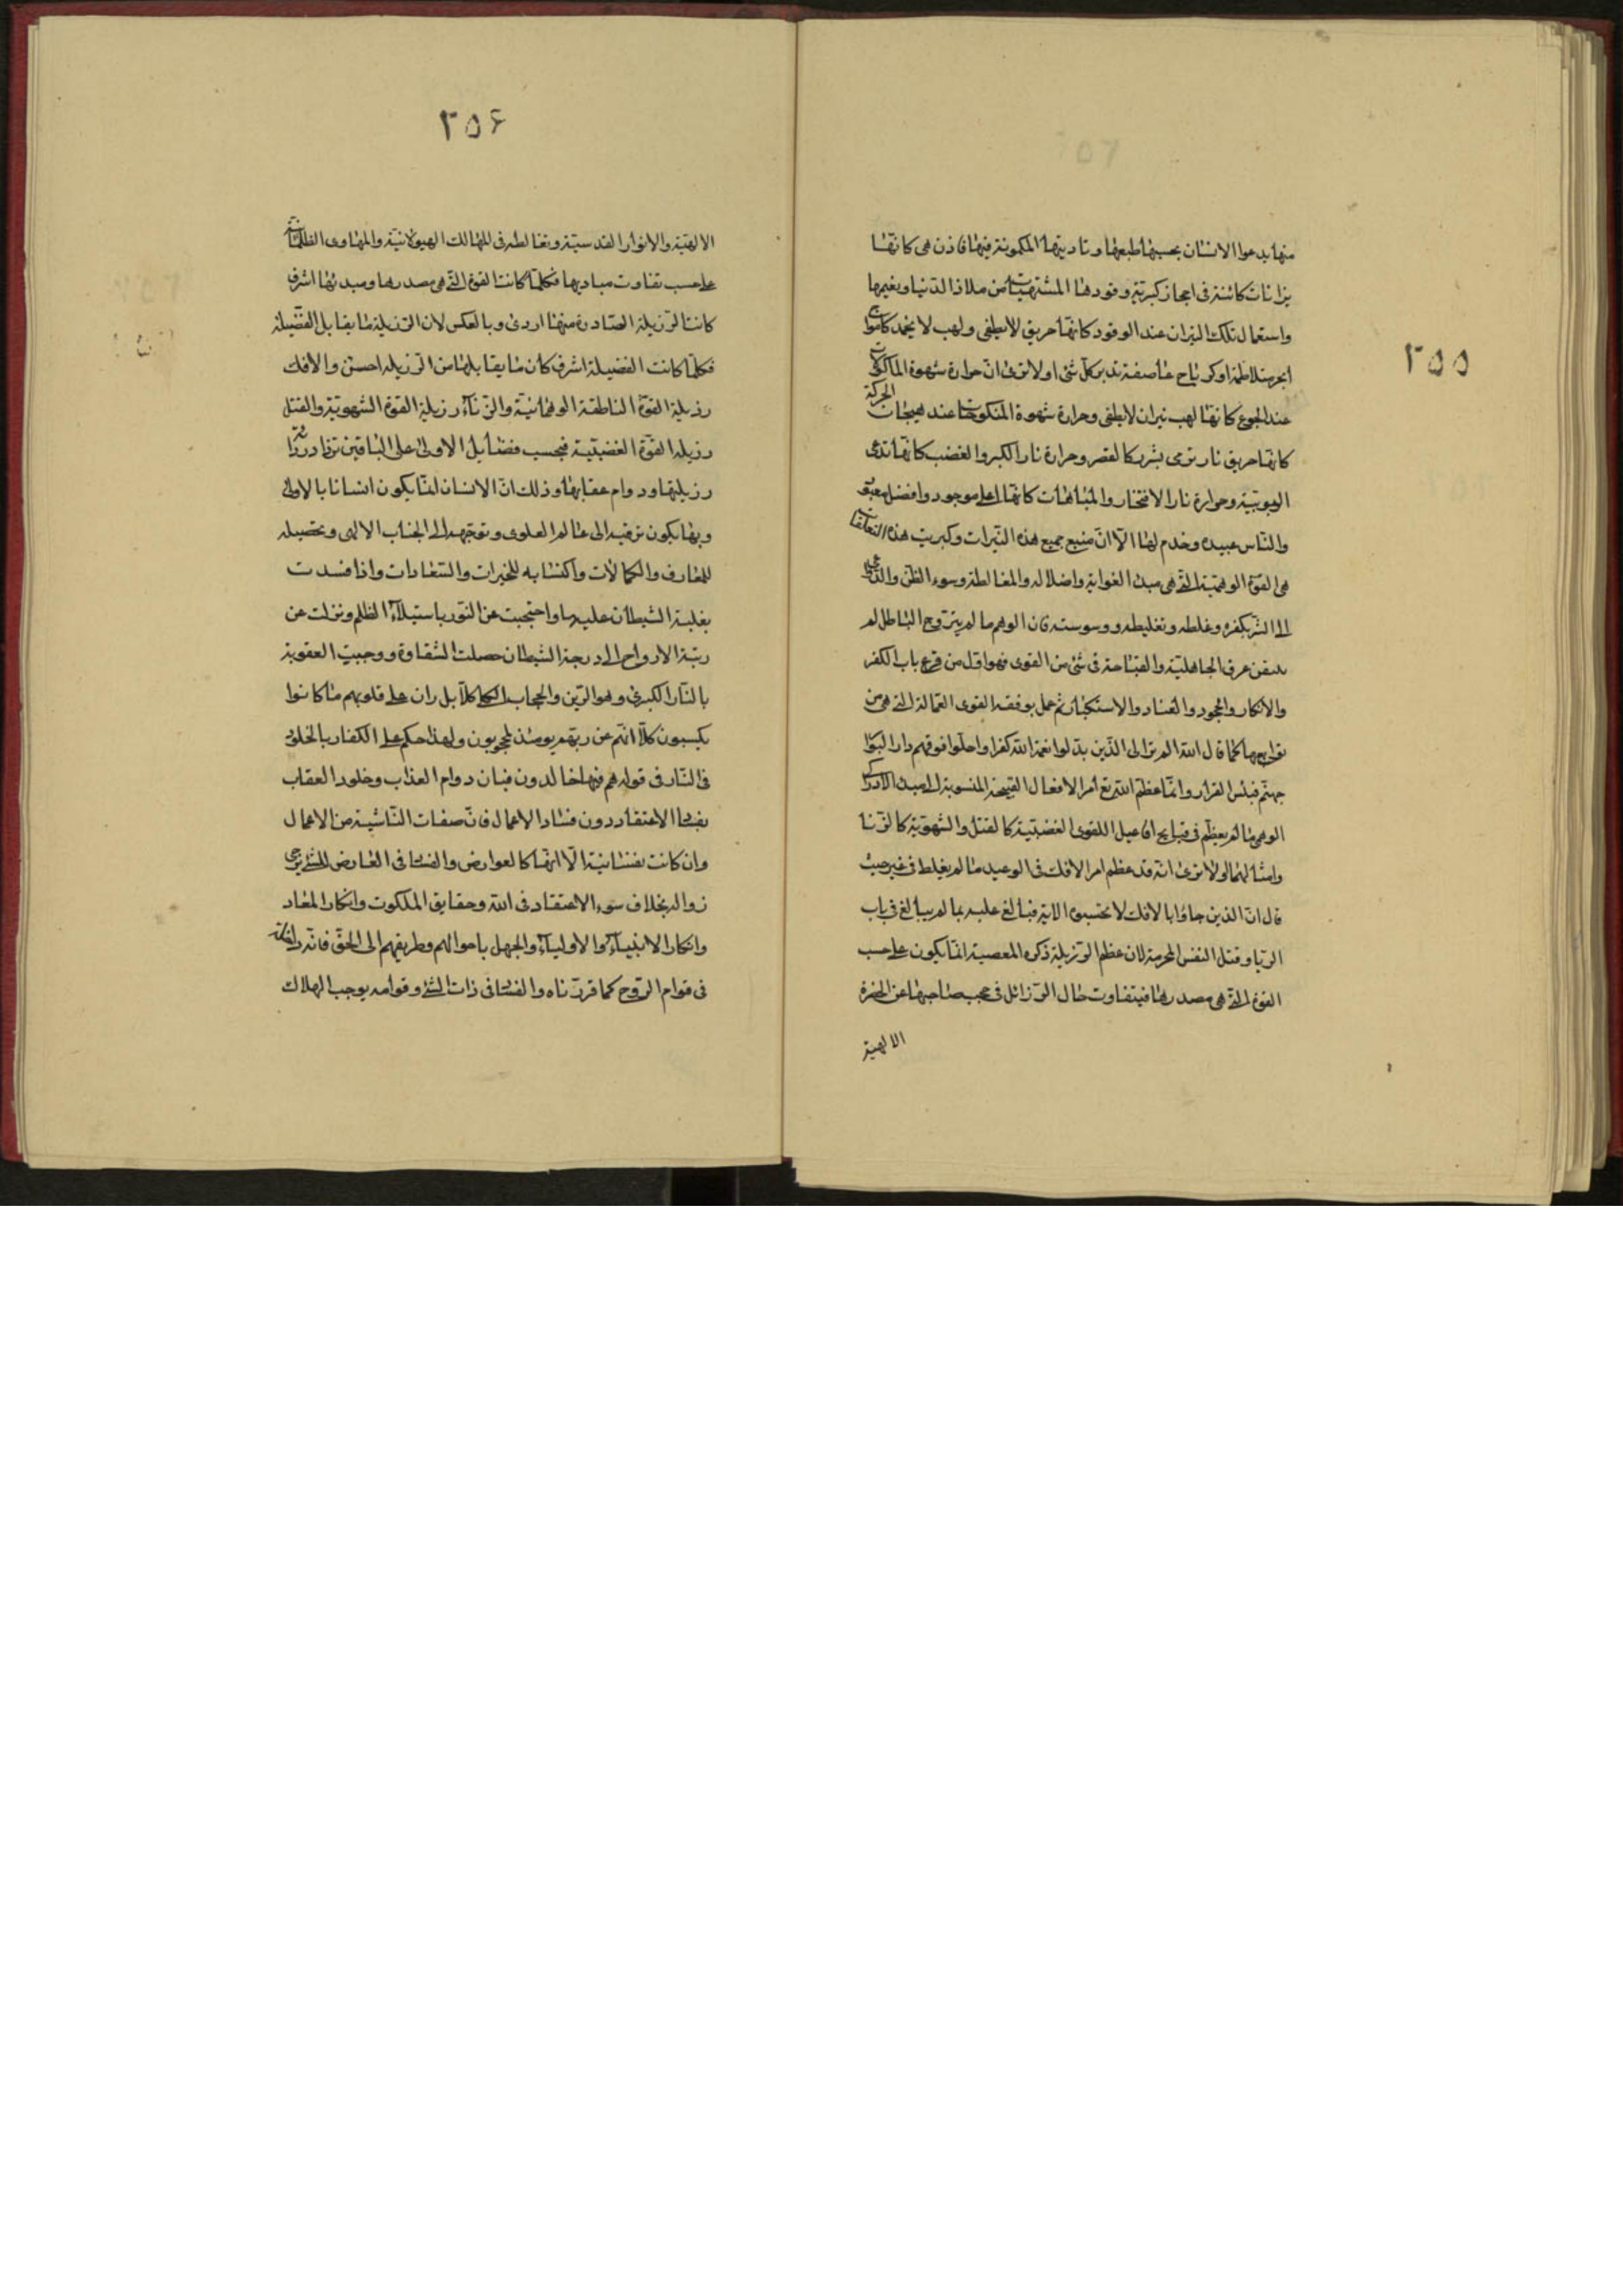 ٢٥٥
منها يدعوا الانسان بحسبها طبعها وناريتها المكمونة فيها فاذن هى كانها
نيرانات كائنة فى احجار كبرتية وقودها المشتهيات من ملاذ الدنيا ونعيمها
واستعمال تلك النيران عند الوقود كانها حريق لا يطفى ولهب لا يخمد كامواج
ابحر متلاطمة او كرياح عاصفة تدمر كل شئ اولا ترى ان حرارة شهوة الماكولات
عند الجوع كانها لهب نيران لا يطفى وحرارة شهوة المنكوحات عند هيجان الحركة
كانها حريق نار ترمى بشرر كالقصر وحرارة نار الكبر والغضب كانها تدعى
الربوبية وحرارة نار الافتخار والمباهات كانها اعلى موجود وافضل معبود
والناس عبيده وخدم لها الا ان منبع جميع هذه النيرات وكبريت هذه التعلقات
هى القوة الوهمية التى هى مبدء الغواية واضلاله والمغالطة وسوء الظن والداعى
الى الشر بكفره وغلطه وتغليطه ووسوسته فان الوهم ما لم يتروح الباطل لم
عرق الجاهلية والقباحة فى شئ من القوى فهو اول من قرع باب الكفر
والانكار والجحود والعناد والاستكبار ثم عمل بوفقه القوى العمالة التى هى من
توابعها كما قال الله الم تر الى الذين بدلوا نعمة الله كفرا واحلوا قومهم دار البوار
جهنم فبئس القرار وانما عظم الله تع امر الافعال القبيحة المنسوبة الى مبدء الادراكى
الوهمى ما لم يعظم فى قبايح افاعيل اللقوى الغضبية كالقتل والشهوية كالزنا
وامثالهما اولا ترى انه قد عظم امر الافك فى الوعيد ما لم يغلظ فى غير حيث
قال ان الذين جاؤا بالافك لا تحسبوه الاية فبالغ عليه بما لم يبالغ فى باب
الزنا وقتل النفس المحرمة لان عظم الرزيلة ذكره المعصية انما يكون على حسب
القوة التى هى مصدرها فيتفاوت حال الرزائل فى حجب صاحبها عن الحضرة
الالهية
٢٥۶
الالهية والانوار القدسية وتغالطه فى المهالك الهيولانية والمهاوى الظلمانية
على حسب تفاوت مباديها فكلما كانت القوة التى هى مصدرها ومبدئها اشرف
كانت الرزيلة الصادرة منها اردى وبالعكس لان الرزيلة ما يقابل الفضيلة
فكلما كانت الفضيلة اشرف كان ما يقابلها من الرزيلة احسن والافك
رذيلة القوة الناطقة الوهمانية والزناء رزيلة القوة الشهوية والقتل
رزيلة القوة الغضبية فبحسب فضايل الاولى على الباقين تزداد ردائة
رزيلتها ودوام عقابها وذلك ان الانسان انما يكون انسانا بالاولى
وبها يكون ترقيه الى عالم العلوى وتوجهه الى الجناب الالهى وتحصيله
للمعارف والكمالات واكتسابه للخيرات والسعادات واذا فسدت
بغلبة الشيطان عليها واحتجبت عن النور باستيلاء الظلم ونزلت عن
رتبة الارواح الى درجة الشيطان حصلت الشقاوة ووجبت العقوبة
بالنار الكبرى وهو الرين والحجاب الكلى كلا بل ران على قلوبهم ما كانوا
يكسبون كلا انهم عن ربهم يومئذ لمحجوبون ولهذا حكم على الكفار بالخلود
فى النار فى قوله هم فيها خالدون فبان دوام العذاب وخلود العقاب
بفساد الاعتقاد دون فساد الاعمال فان صفات الناشية من الاعمال
وان كانت نفسانية الا انها كالعوارض والفساد فى العارض للشئ يرجى
زواله بخلاف سوء الاعتقاد فى الله وحقايق الملكوت وانكار المعاد
وانكار الانبياء والاولياء والجهل باحوالهم وطريقهم الى الحق فانه
فى قوام الروح كما قررناه والفساد فى ذات الشئ وقوامه يوجب الهلاك